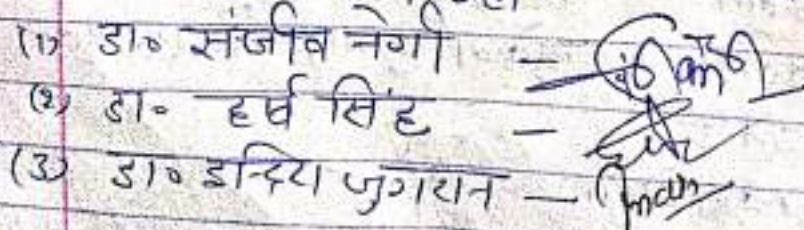 (1) डा॰ संजीव नेगी -
(2) डा॰ हर्ष सिंह -
(3) डा॰ इन्दिरा जुगरान -